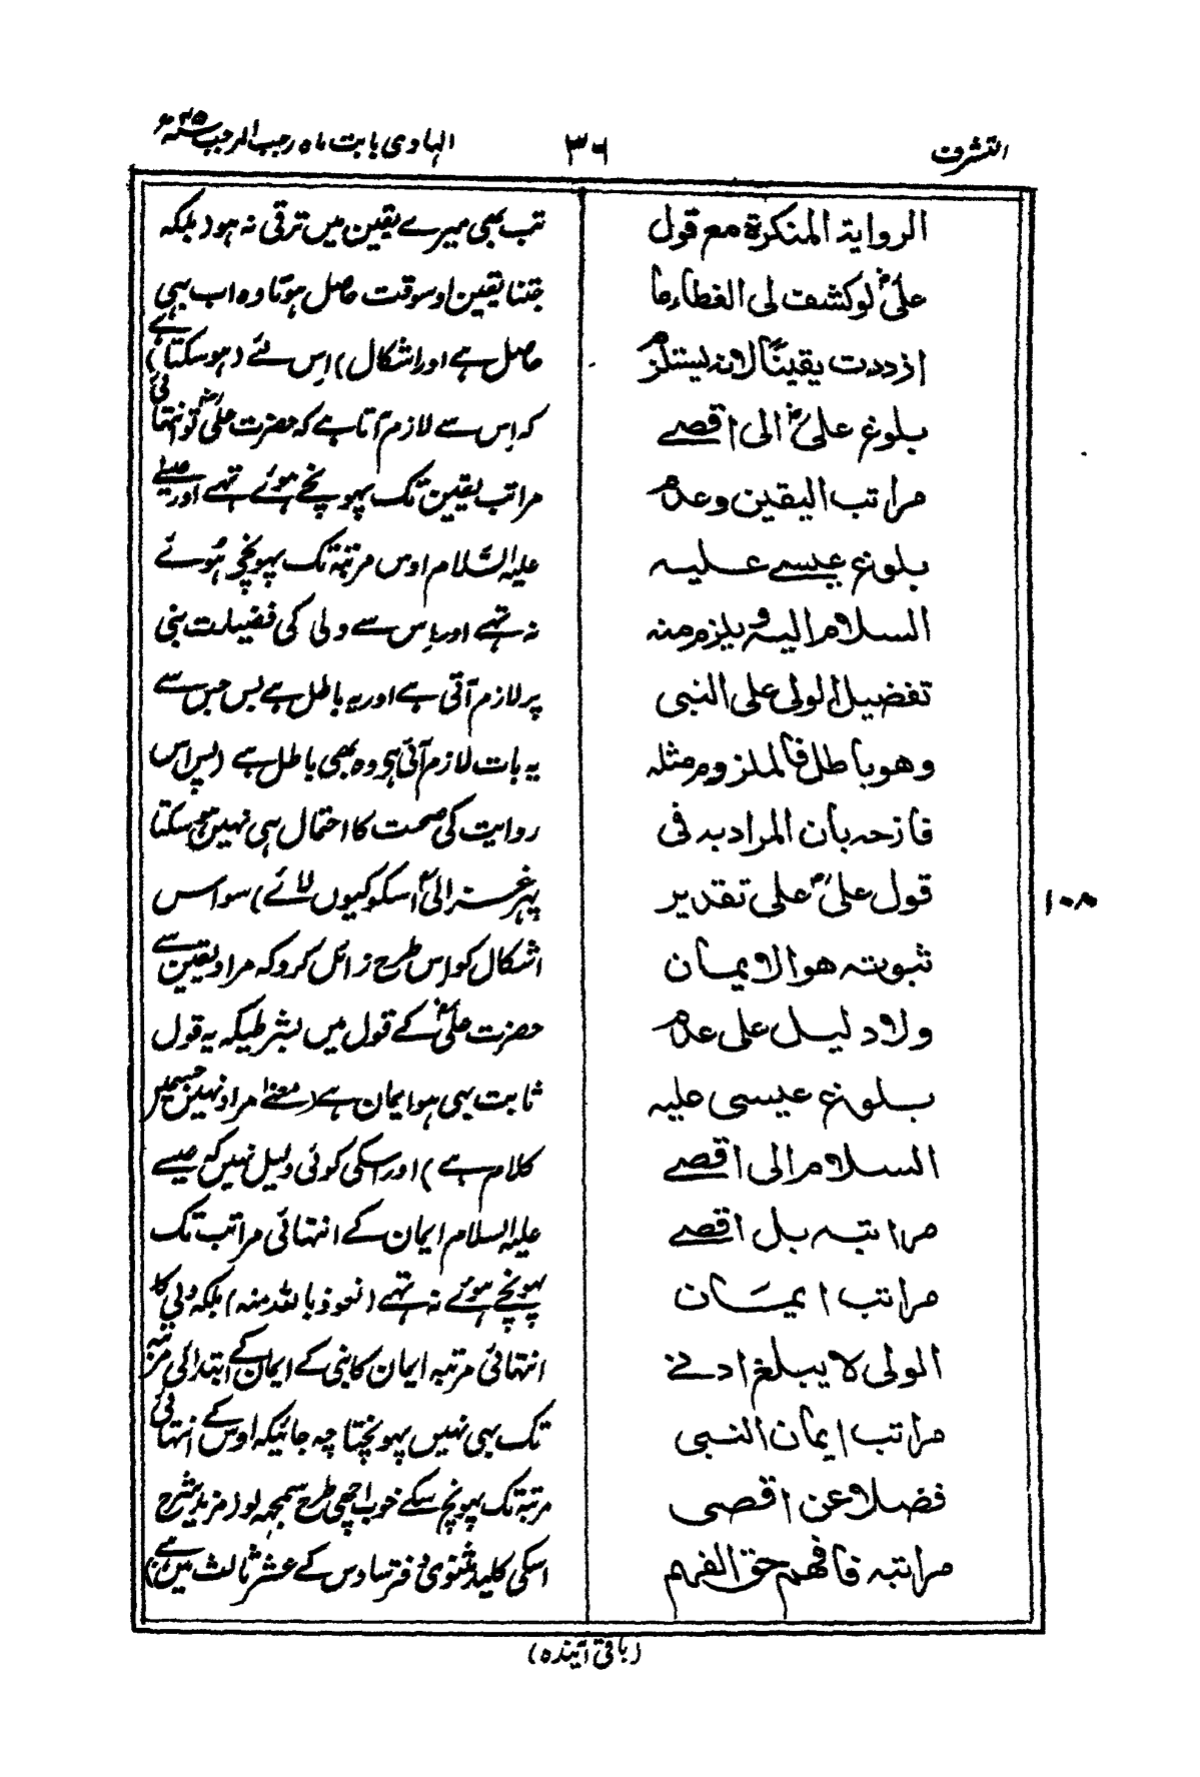 التشرف
۳۶
الہادی بابت ماہ رجب المرجب سنہ ۴۵ھ
الرواية المنكرة مع قول
علیؓ لو کشف لی الغطاء ما
ازددت یقیناً لانہ لیستلزم
بلوغ علیؓ الی اقصے
مراتب الیقین وعدم
بلوغ عیسے علیہ
السلام الیہ ویلزم منہ
تفضیل الولی علی النبی
وھو باطل فالملزوم مثلہ
فازحہ بان المراد بہ فی
قول علیؓ علی تقدیر
ثبوتہ ھو الایمان
ولا دلیل علی عدم
بلوغ عیسی علیہ
السلام الی اقصے
مراتبہ بل اقصے
مراتب ایمان
الولی لا یبلغ ادنے
مراتب ایمان النبی
فضلا عن اقصی
مراتبہ فافھم حق الفھم
تب بھی میرے یقین میں ترقی نہ ہو (بلکہ
جتنا یقین اوسوقت حاصل ہوتا وہ اب بھی
حاصل ہے اور اشکال) اِس لئے (ہو سکتا ہے)
کہ اِس سے لازم آتا ہے کہ حضرت علیؓ تو انتہائی
مراتب یقین تک پہونچے ہوئے تہے اور عیسے
علیہ السّلام اوس مرتبہ تک پہونچے ہُوئے
نہ تہے اور اِس سے ولی کی فضیلت نبی
پر لازم آتی ہے اور یہ باطل ہے بس جس سے
یہ بات لازم آئی ہو وہ بھی باطل ہے (پس اس
روایت کی صحت کا احتمال ہی نہیں ہو سکتا
پہر غزالیؒ اسکو کیوں لائے) سو اس
اشکال کو اِس طرح زائل کرو کہ مراد یقین سے
حضرت علیؓ کے قول میں بشرطیکہ یہ قول
ثابت بھی ہو ایمان ہے (معنے مراد نہیں جسمیں
کلام ہے) اور اسکی کوئی دلیل نہیں کہ عیسے
علیہ السلام ایمان کے انتہائی مراتب تک
پہونچے ہوئے نہ تہے (نعوذ باللہ منہ) بلکہ ولی کا
انتہائی مرتبہ ایمان کا نبی کے ایمان کے ابتدائی مرتبہ
تک بھی نہیں پہونچتا چہ جائیکہ اوس کے انتہائی
مرتبہ تک پہونچ سکے خوب اچھی طرح سمجہہ لو (مزید شرح
اسکی کلید مثنوی دفتر سادس کے عشر ثالث میں ہے)
۱۰۸
(باقی آیندہ)